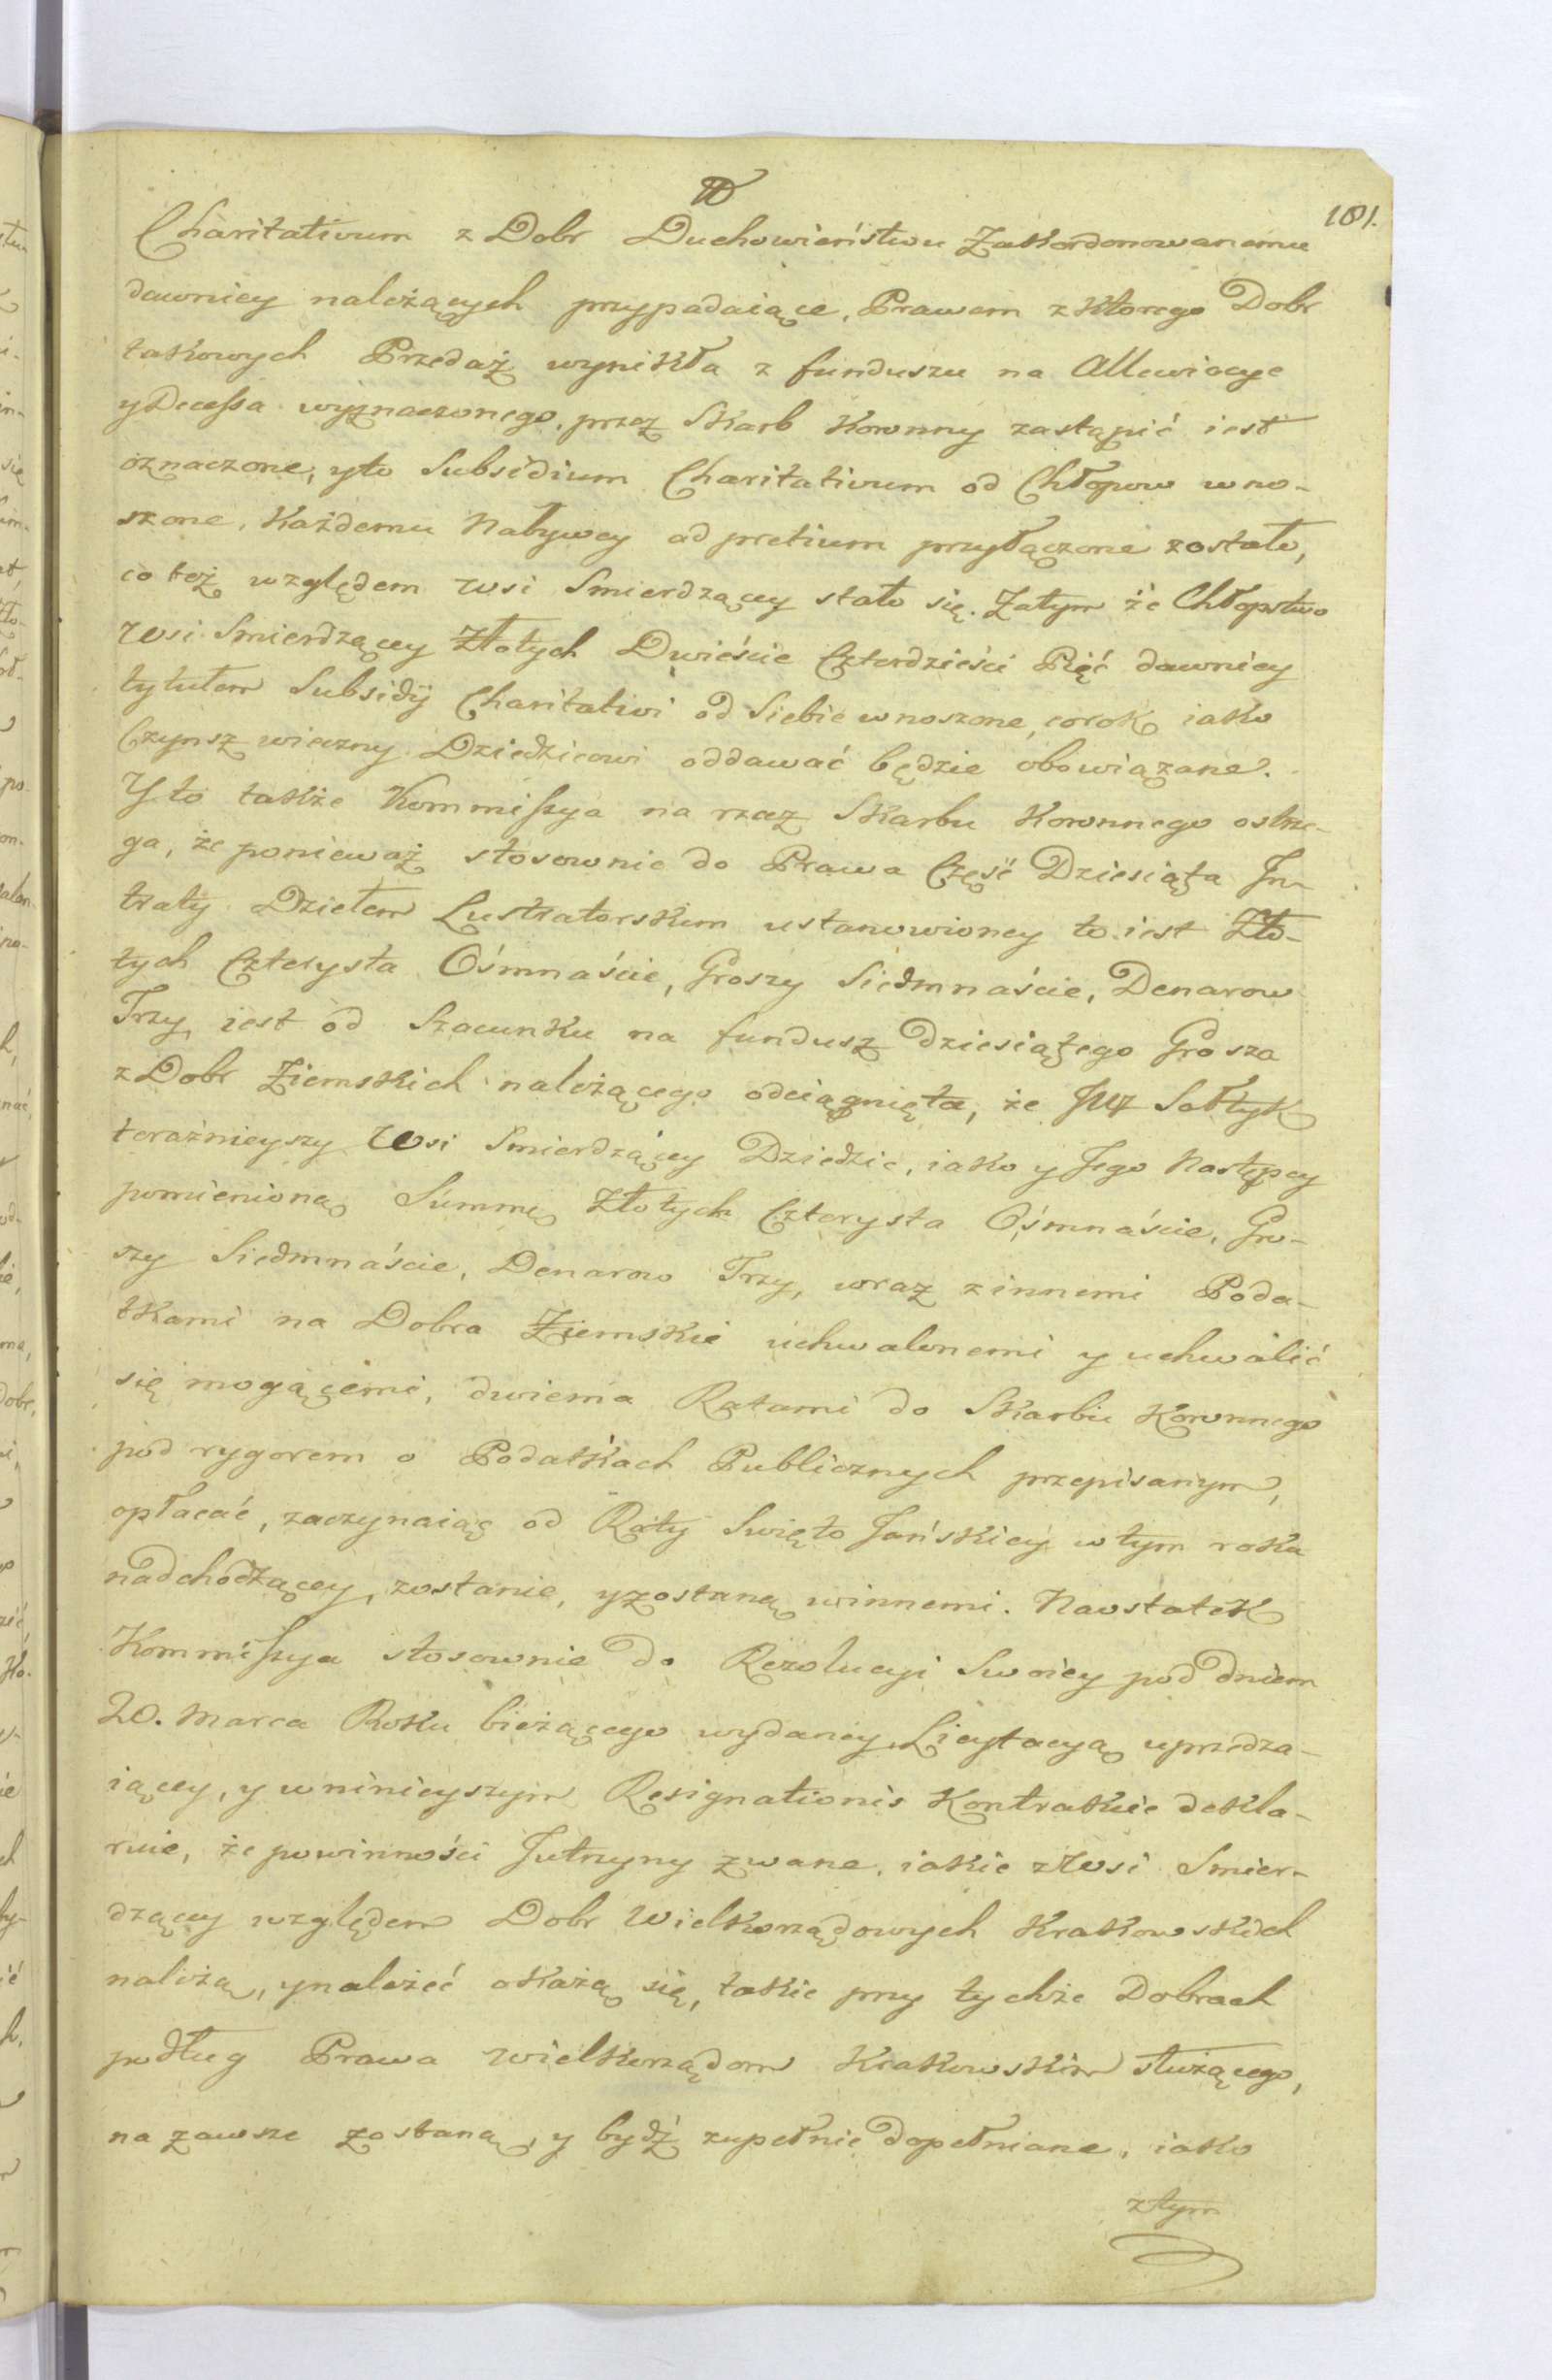 181.
Charitativum z Dobr Duchowieństwu Zakordonowanemu
dawniey należących przypadaiące, Prawem z którego Dobr
takowych Przedaż wynikła z funduszu na Allewiacye
y Decessa wyznaczonego, przez Skarb Koronny zastąpić iest
oznaczone, y to Subsidium Charitativum od Chłopow wno-
szone, Każdemu Nabywcy ad pretium przyłączone zostało,
co też względem Wsi Smierdzącey stało się. Zatym że Chłopstwo
Wsi Smierdzącey Złotych Dwieście Czterdzieści Pięć dawniey
tytułem Subsidij Charitativi od Siebie wnoszone, corok iako
Czynsz wieczny Dziedzicowi oddawać będzie obowiązane.
Y to także Kommissya na rzecz Skarbu Koronnego ostrze-
ga, że ponieważ stosownie do Prawa Część Dziesiąta In-
traty Dziełem Lustratorskim ustanowioney to iest Zło-
tych Czterysta Ośmnaście, Groszy Siedmnaście, Denarow
Trzy, iest od Szacunku na fundusz Dziesiątego Grosza
z Dobr Ziemskich należącego odciągnięta, że JW Sołtyk
teraźnieyszy Wsi Smierdzącey Dziedzic, iako y Jego Następcy
pomienioną Summę Złotych Czterysta Ośmnaście, Gro-
szy Siedmnaście, Denarow Trzy, wraz z innemi Poda-
tkami na Dobra Ziemskie uchwalonemi y uchwalić
się mogącemi, dwiema Ratami do Skarbu Koronnego
pod rygorem o Podatkach Publicznych przepisanym,
opłacać, zaczynaiąc od Raty Swięto Jańskiey w tym roku
nadchodzącey, zostanie, y zostaną winnemi. Naostatek
Kommissya stosownie do Rezolucyi Swoiey pod dniem
20. Marca Roku bieżącego wydaney, Licytacyą uprzedza-
iącey, y w ninieyszym Resignationis Kontrakcie dekla-
ruie, że powinności Jutrzyny zwane, iakie z Wsi Smier-
dzącey względem Dobr Wielkorządowych Krakowskich
należą, y należeć okażą się, takie przy tychże Dobrach
podług Prawa Wielkorządom Krakowskim służącego,
na zawsze zostaną, y bydź zupełnie dopełniane, iako
z tym